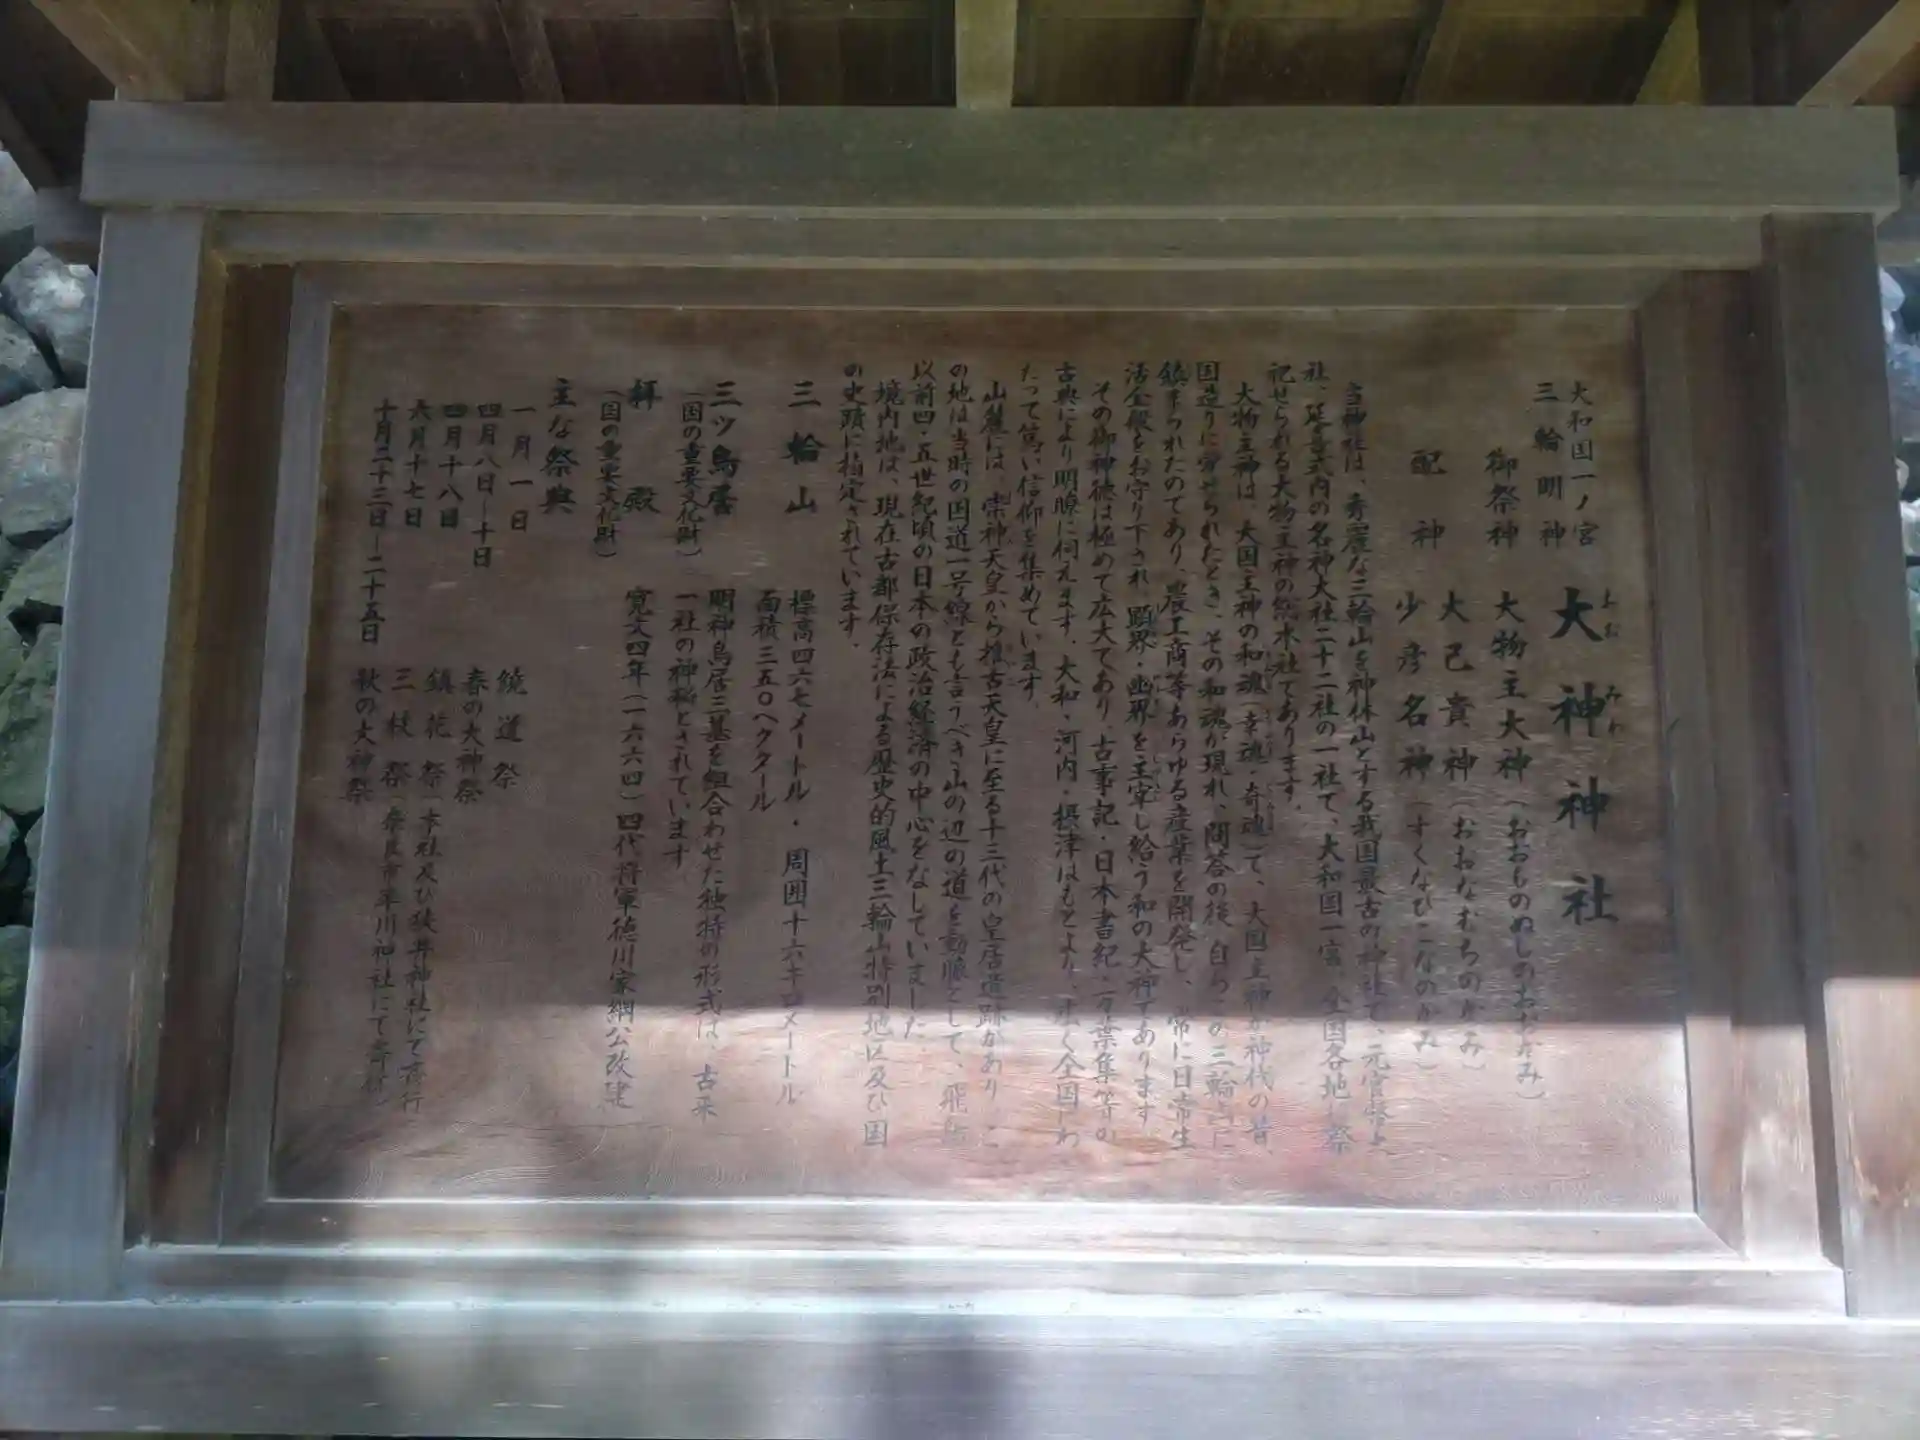 大和国一ノ宮
三輪明神
大神神社
おお みわ
御祭神 大物主大神（おおものぬしのおおかみ）
配神 大己貴神（おおなむちのかみ）
少彦名神（すくなひこなのかみ）
当神社は、秀麗な三輪山を神体山とする我国最古の神社で、元官幣大
社、延喜式内の名神大社二十二社の一社で、大和国一宮、全国各地に祭
祀せられる大物主神の総本社であります。
大物主神は、大国主神の和魂（幸魂・奇魂）で、大国主神が神代の昔、
国造りに労せられたとき、その和魂が現れ、問答の後、自らこの三輪山に
鎮まられたのであり、農工商等あらゆる産業を開発し、常に日常生
活全般をお守り下され、顕界・幽界を主宰し給う和の大神であります。
その御神徳は極めて広大であり、古事記・日本書紀・万葉集等の
古典により明瞭に伺えます。大和・河内・摂津はもとより、広く全国にわ
たって篤い信仰を集めています。
山麓には、崇神天皇から推古天皇に至る十三代の皇居遺跡があり、こ
の地は当時の国道一号線とも言うべき山の辺の道を動脈として、飛鳥
以前四・五世紀頃の日本の政治経済の中心をなしていました。
境内地は、現在古都保存法による歴史的風土三輪山特別地区及び国
の史蹟に指定されています。
三輪山 標高四六七メートル・周囲十六キロメートル
面積三五〇ヘクタール
三ツ鳥居 明神鳥居三基を組合わせた独特の形式は、古来
（国の重要文化財） 一社の神秘とされています
拝殿 寛文四年（一六六四）四代将軍徳川家綱公改建
（国の重要文化財）
主な祭典
一月一日 繞道祭
四月八日－十日 春の大神祭
四月十八日 鎮花祭（本社及び狭井神社にて斎行
六月十七日 三枝祭（奈良市率川神社にて斎行）
十月二十三日－二十五日 秋の大神祭